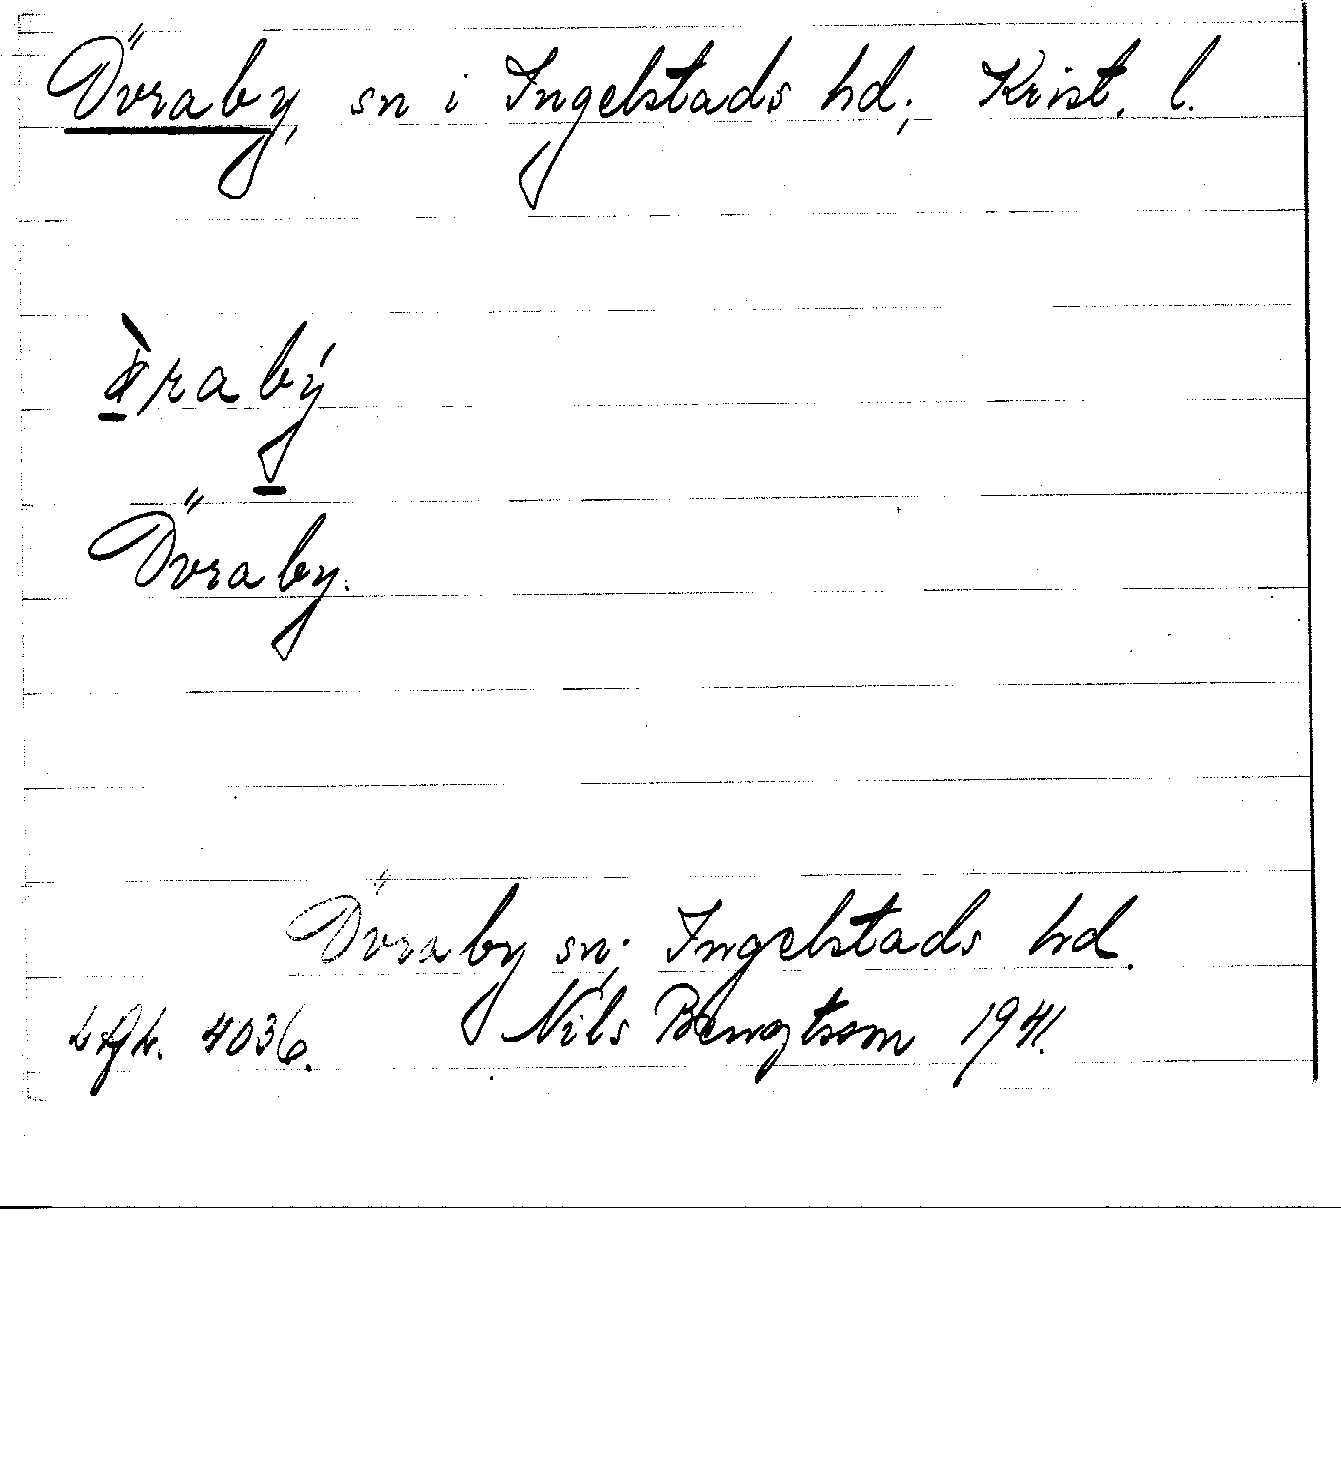 Övraby, sn i Ingelstads hd; Krist. l.
Övraby.
Övraby sn; Ingelstads hd.
4036. Nils Bengtsson 1941.